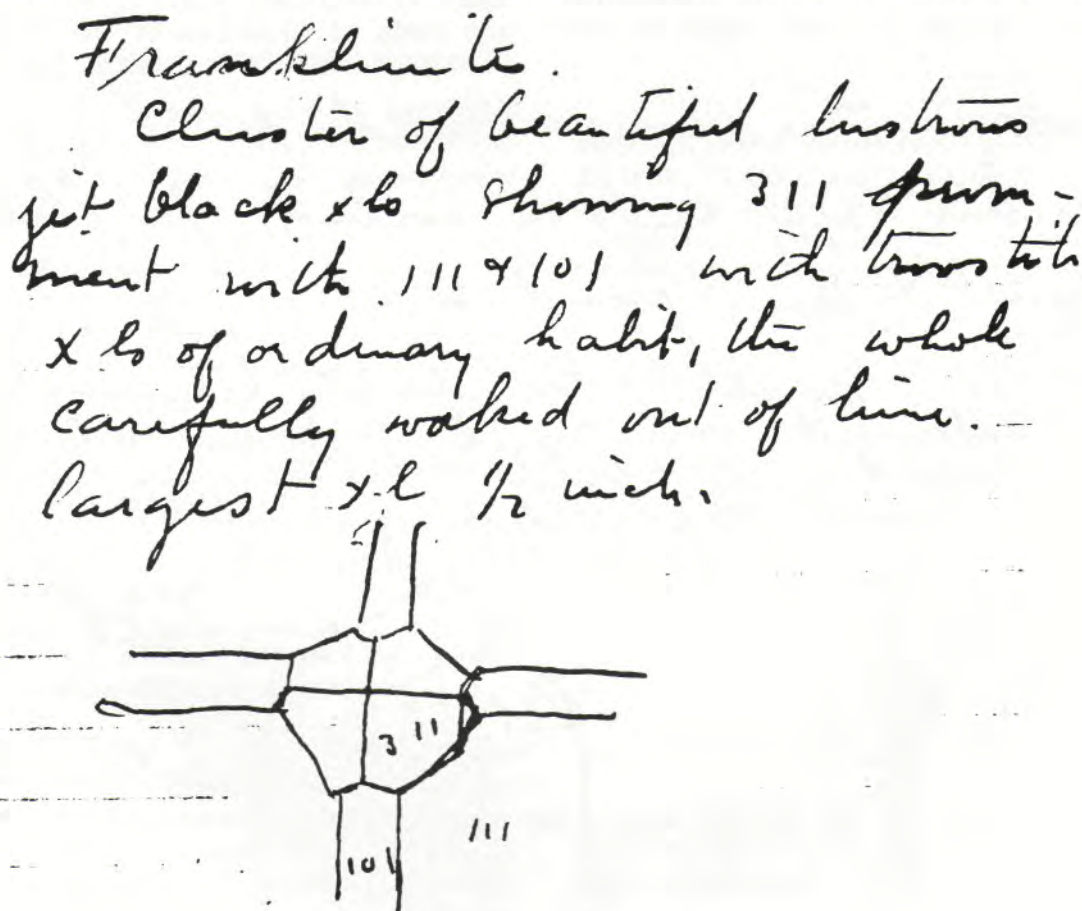 Franklinite.
Cluster of beautiful lustrous
jet black xls showing 311 prom-
inent with 111 & 101 with troostite
xls of ordinary habit, the whole
carefully worked out of lime.
largest xl 1/2 inch.
311
111
101